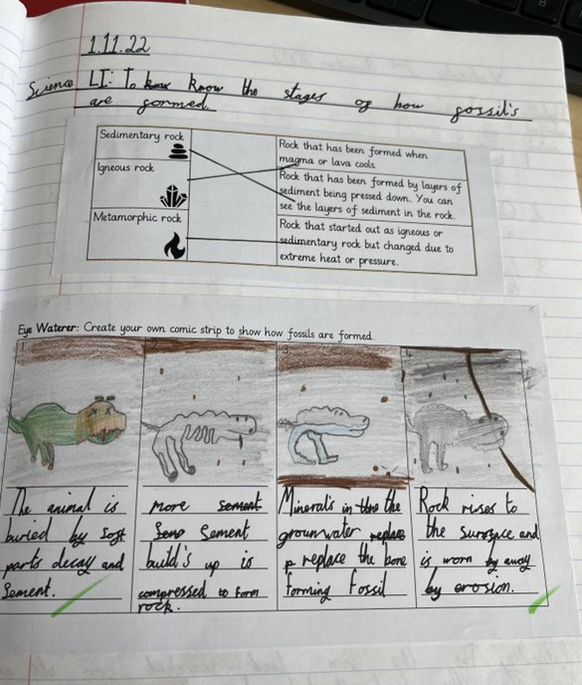 1.11.22
Science LI: To know Know the stages of how fossil's
are formed.
Sedimentary rock
Igneous rock
Metamorphic rock
Rock that has been formed when
magma or lava cools.
Rock that has been formed by layers of
sediment being pressed down. You can
see the layers of sediment in the rock.
Rock that started out as igneous or
sedimentary rock but changed due to
extreme heat or pressure.
Eye Waterer: Create your own comic strip to show how fossils are formed.
1
The animal is
buried by soft
parts decay and
Sement.
2
more sement
Seno Sement
build's up is
compressed to form
rock.
3
Mineral's in the the
grounwater replace
p replace the bone
forming Fossil
4
Rock rises to
the surface and
is worn by away
by erosion.